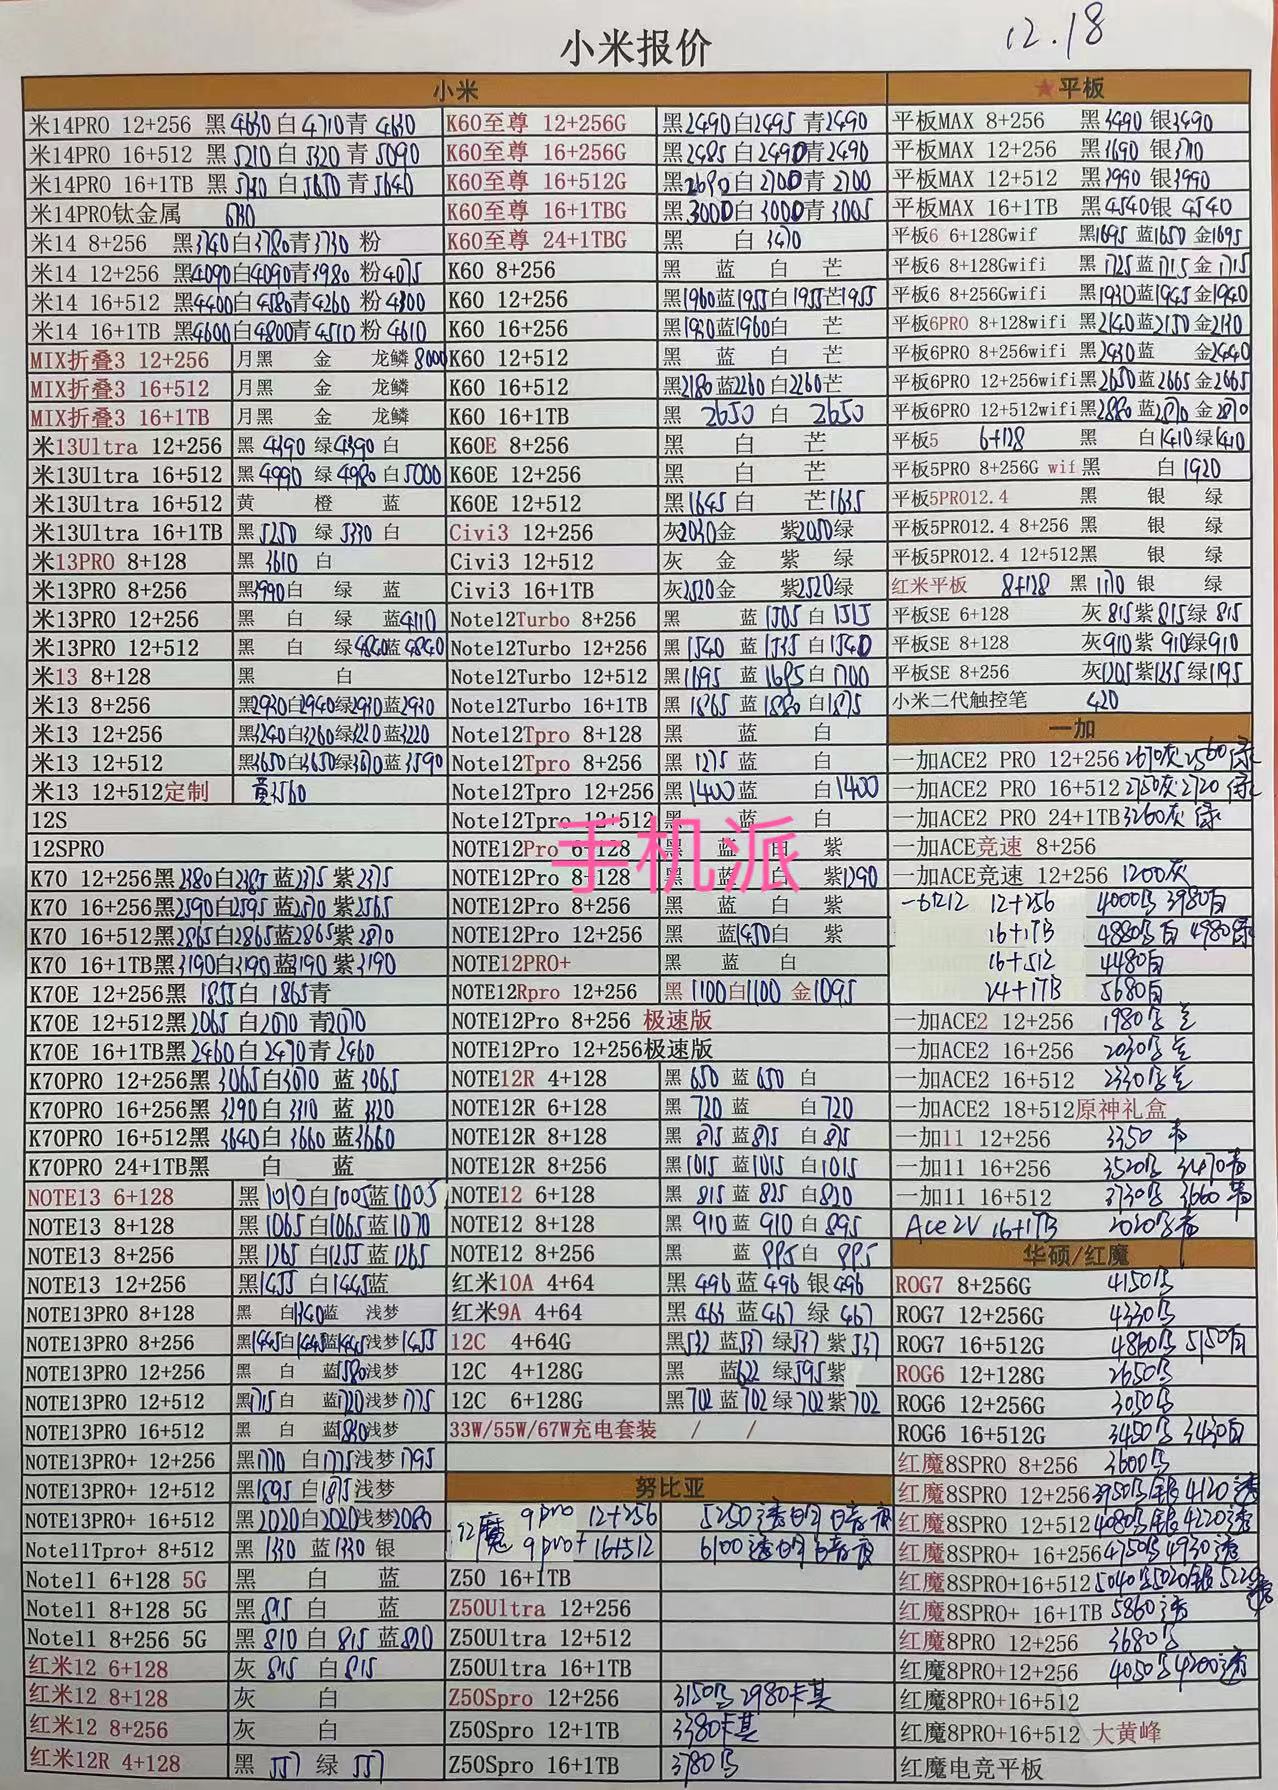 12.18
小米报价
小米
米14PRO 12+256 黑4630白4710青4630
米14PRO 16+512 黑5210白5320青5090
米14PRO 16+1TB 黑 白5670青5640
米14PRO钛金属
米14 8+256 黑3740白3780青3730粉
米14 12+256 黑4090白4090青3980粉4075
米14 16+512 黑4400白4580青4260粉4300
米14 16+1TB 黑4600白4800青4510粉4610
MIX折叠3 12+256 月黑 金 龙鳞8000
MIX折叠3 16+512 月黑 金 龙鳞
MIX折叠3 16+1TB 月黑 金 龙鳞
米13Ultra 12+256 黑4390绿4390白
米13Ultra 16+512 黑4990绿4980白5000
米13Ultra 16+512 黄 橙 蓝
米13Ultra 16+1TB 黑5250绿5330白
米13PRO 8+128 黑3610白
米13PRO 8+256 黑3990白 绿 蓝
米13PRO 12+256 黑 白 绿 蓝4110
米13PRO 12+512 黑 白 绿4840蓝4840
米13 8+128 黑 白
米13 8+256 黑2930白2940绿2930蓝2930
米13 12+256 黑3240白3260绿3220蓝3220
米13 12+512 黑3650白3650绿 蓝3590
米13 12+512定制 黄3560
12S
12SPRO
K70 12+256黑2380白2385蓝2375紫2375
K70 16+256黑2590白2595蓝2570紫2565
K70 16+512黑2865白2865蓝2865紫2870
K70 16+1TB黑3190白3190蓝3190紫3190
K70E 12+256黑1855白1865青
K70E 12+512黑2065白2070青2070
K70E 16+1TB黑2460白2470青2460
K70PRO 12+256黑3065白3070蓝3065
K70PRO 16+256黑3290白3310蓝3320
K70PRO 16+512黑3640白3660蓝3660
K70PRO 24+1TB黑 白 蓝
NOTE13 6+128 黑1010白1005蓝1005
NOTE13 8+128 黑1065白1065蓝1070
NOTE13 8+256 黑1265白1255蓝1265
NOTE13 12+256 黑1455白1445蓝
NOTE13PRO 8+128 黑 白1340蓝 浅梦
NOTE13PRO 8+256 黑1445白1445蓝1445浅梦1455
NOTE13PRO 12+256 黑 白 蓝1580浅梦
NOTE13PRO 12+512 黑1715白 蓝1720浅梦1775
NOTE13PRO 16+512 黑 白 蓝1830浅梦
NOTE13PRO+ 12+256 黑1770白1775浅梦1795
NOTE13PRO+ 12+512 黑1895白1875浅梦
NOTE13PRO+ 16+512 黑2020白2020浅梦2080
Note11Tpro+ 8+512 黑1330蓝1330银
Note11 6+128 5G 黑 白 蓝
Note11 8+128 5G 黑815白 蓝
Note11 8+256 5G 黑810白815蓝820
红米12 6+128 灰815白815
红米12 8+128 灰 白
红米12 8+256 灰 白
红米12R 4+128 黑557绿557
K60至尊 12+256G 黑2490白2495青2490
K60至尊 16+256G 黑2485白2490青2490
K60至尊 16+512G 黑2690白2700青2700
K60至尊 16+1TBG 黑3000白3000青3005
K60至尊 24+1TBG 黑 白3470
K60 8+256 黑 蓝 白 芒
K60 12+256 黑1960蓝1955白1955芒1955
K60 16+256 黑1930蓝1960白 芒
K60 12+512 黑 蓝 白 芒
K60 16+512 黑2180蓝2260白2260芒
K60 16+1TB 黑2650白2650
K60E 8+256 黑 白 芒
K60E 12+256 黑 白 芒
K60E 12+512 黑1645白 芒1635
Civi3 12+256 灰2030金 紫2050绿
Civi3 12+512 灰 金 紫 绿
Civi3 16+1TB 灰2520金 紫2520绿
Note12Turbo 8+256 黑 蓝1505白1515
Note12Turbo 12+256 黑1540蓝1535白1540
Note12Turbo 12+512 黑1695蓝1685白1700
Note12Turbo 16+1TB 黑1865蓝1880白1875
Note12Tpro 8+128 黑 蓝 白
Note12Tpro 8+256 黑1275蓝 白
Note12Tpro 12+256 黑1400蓝 白1400
Note12Tpro 12+512 黑 蓝 白
手机派
NOTE12Pro 6+128 黑 蓝 白 紫
NOTE12Pro 8+128 黑 蓝 白 紫1290
NOTE12Pro 8+256 黑 蓝 白 紫
NOTE12Pro 12+256 黑 蓝1450白 紫
NOTE12PRO+ 黑 蓝 白
NOTE12Rpro 12+256 黑1100白1100金1095
NOTE12Pro 8+256 极速版
NOTE12Pro 12+256极速版
NOTE12R 4+128 黑650蓝650白
NOTE12R 6+128 黑720蓝 白720
NOTE12R 8+128 黑875蓝875白875
NOTE12R 8+256 黑1015蓝1015白1015
NOTE12 6+128 黑815蓝825白820
NOTE12 8+128 黑910蓝910白895
NOTE12 8+256 黑 蓝995白995
红米10A 4+64 黑496蓝496银496
红米9A 4+64 黑463蓝467绿467
12C 4+64G 黑532蓝537绿537紫537
12C 4+128G 黑 蓝622绿595紫
12C 6+128G 黑702蓝702绿702紫702
33W/55W/67W充电套装 / /
努比亚
红魔 9pro 12+256 5250透明 暗夜
9pro+ 16+512 6100透明 暗夜
Z50 16+1TB
Z50Ultra 12+256
Z50Ultra 12+512
Z50Ultra 16+1TB
Z50Spro 12+256 3150 2980卡其
Z50Spro 12+1TB 3380卡其
Z50Spro 16+1TB 3780
★平板
平板MAX 8+256 黑3490银3490
平板MAX 12+256 黑3690银
平板MAX 12+512 黑3990银3990
平板MAX 16+1TB 黑4540银4540
平板6 6+128Gwif 黑1695蓝1650金1695
平板6 8+128Gwifi 黑1725蓝1715金1715
平板6 8+256Gwifi 黑1930蓝1945金1940
平板6PRO 8+128wifi 黑2140蓝2150金2130
平板6PRO 8+256wifi 黑2430蓝 金2440
平板6PRO 12+256wifi黑2650蓝2665金2665
平板6PRO 12+512wifi黑2880蓝2870金2870
平板5 6+128 黑 白1410绿1410
平板5PRO 8+256G wif黑 白1920
平板5PRO12.4 黑 银 绿
平板5PRO12.4 8+256 黑 银 绿
平板5PRO12.4 12+512黑 银 绿
红米平板 8+128 黑1170银 绿
平板SE 6+128 灰815紫815绿815
平板SE 8+128 灰910紫910绿910
平板SE 8+256 灰1205紫1235绿1195
小米二代触控笔 420
一加
一加ACE2 PRO 12+256 2670灰2560绿
一加ACE2 PRO 16+512 2750灰2720绿
一加ACE2 PRO 24+1TB3260灰绿
一加ACE竞速 8+256
一加ACE竞速 12+256 1200灰
一加12 12+256 4000 3980白
16+1TB 4880 白 4980绿
16+512 4480白
24+1TB 5680白
一加ACE2 12+256 1980
一加ACE2 16+256 2030
一加ACE2 16+512 2330
一加ACE2 18+512原神礼盒
一加11 12+256 3350
一加11 16+256 3520 3470青
一加11 16+512 3730 3660青
Ace 2V 16+1TB 2020 青
华硕/红魔
ROG7 8+256G 4150
ROG7 12+256G 4330
ROG7 16+512G 4860 5150白
ROG6 12+128G 2650
ROG6 12+256G 3050
ROG6 16+512G 3450 3430白
红魔8SPRO 8+256 3600
红魔8SPRO 12+256 3950 银4120透
红魔8SPRO 12+512 4080 银4220透
红魔8SPRO+ 16+256 4750 4930透
红魔8SPRO+16+512 5040 5020银5220透
红魔8SPRO+ 16+1TB 5860透
红魔8PRO 12+256 3680
红魔8PRO+12+256 4050 4200透
红魔8PRO+16+512
红魔8PRO+16+512 大黄峰
红魔电竞平板